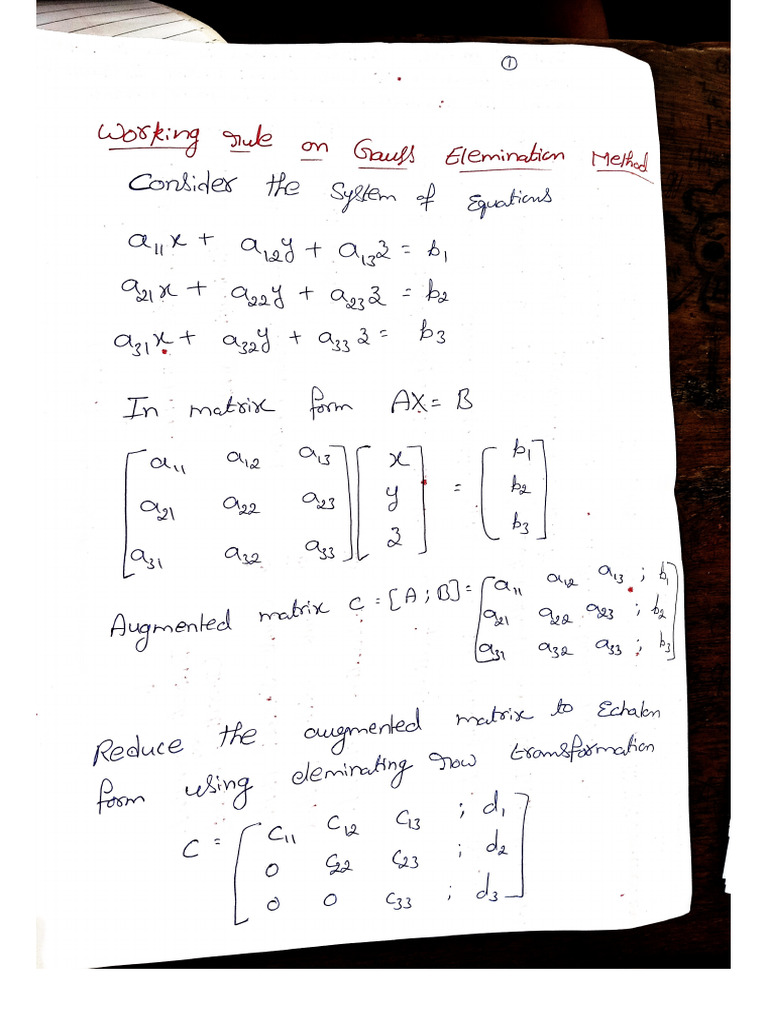 ①
Working rule on Gauss Elemination Method
Consider the System of Equations
a₁₁x + a₁₂y + a₁₃z = b₁
a₂₁x + a₂₂y + a₂₃z = b₂
a₃₁x + a₃₂y + a₃₃z = b₃
In matrix form AX = B
[a₁₁ a₁₂ a₁₃] [x] = [b₁]
[a₂₁ a₂₂ a₂₃] [y] [b₂]
[a₃₁ a₃₂ a₃₃] [z] [b₃]
Augmented matrix C = [A ; B] = [a₁₁ a₁₂ a₁₃ ; b₁]
[a₂₁ a₂₂ a₂₃ ; b₂]
[a₃₁ a₃₂ a₃₃ ; b₃]
Reduce the augmented matrix to Echalon
form using eleminating row transformation
C = [c₁₁ c₁₂ c₁₃ ; d₁]
[0 c₂₂ c₂₃ ; d₂]
[0 0 c₃₃ ; d₃]